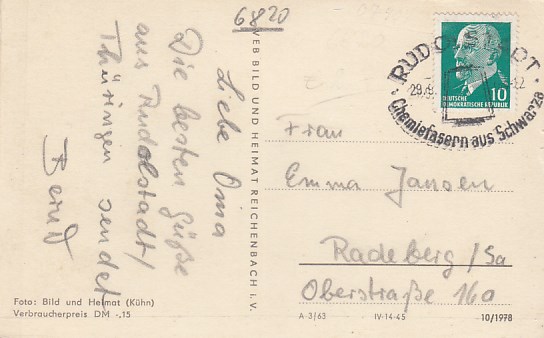 6820
Liebe Oma
Die besten Güße
aus Rudolstadt/
Thüringen sendet
Bernd
Foto: Bild und Heimat (Kühn)
Verbraucherpreis DM -,15
VEB BILD UND HEIMAT REICHENBACH i. V.
RUDOLSTADT
29.8.
DEUTSCHE
DEMOKRATISCHE REPUBLIK
10
Chemiefasern aus Schwarza
Frau
Emma Jansen
Radeberg/Sa
Oberstraße 160
A 3/63 IV-14-45 10/1978